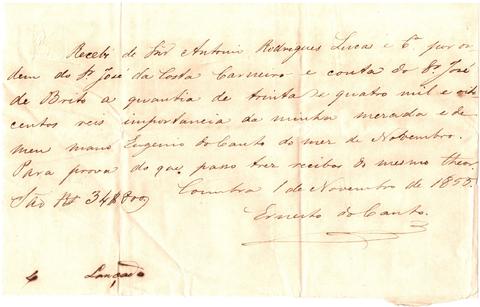 Recebi do Snr Antonio Rodrigues Lucas e Cª. por or
dem do Sr José da Costa Carneiro e conta do Sr. José
de Brito a quantia de trinta e quatro mil e oito
centos reis importancia da minha mezada e de
meu mano Eugenio do Canto do mez de Novembro.
Para prova do que passo trez recibos do mesmo theor.
Coimbra 1 de Novembro de 1855.
São Rs 34$800
Ernesto do Canto.
Lançado